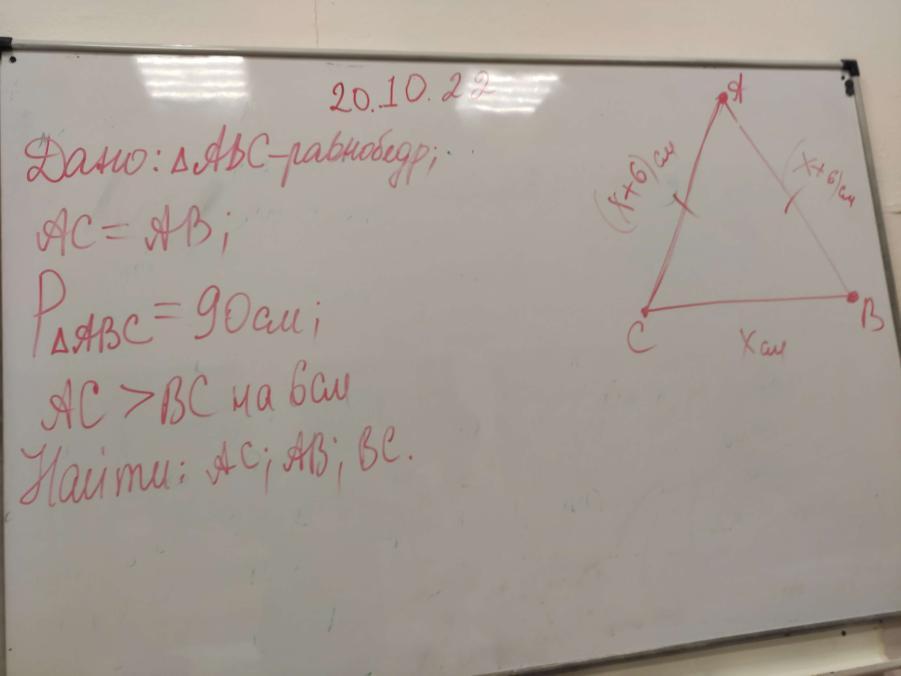 20.10.22
Дано: △ABC-равнобедр;
AC = AB;
P△ABC = 90см;
AC > BC на 6см
Найти: AC; AB; BC.
A
(x+6)см
(x+6)см
C
B
x см